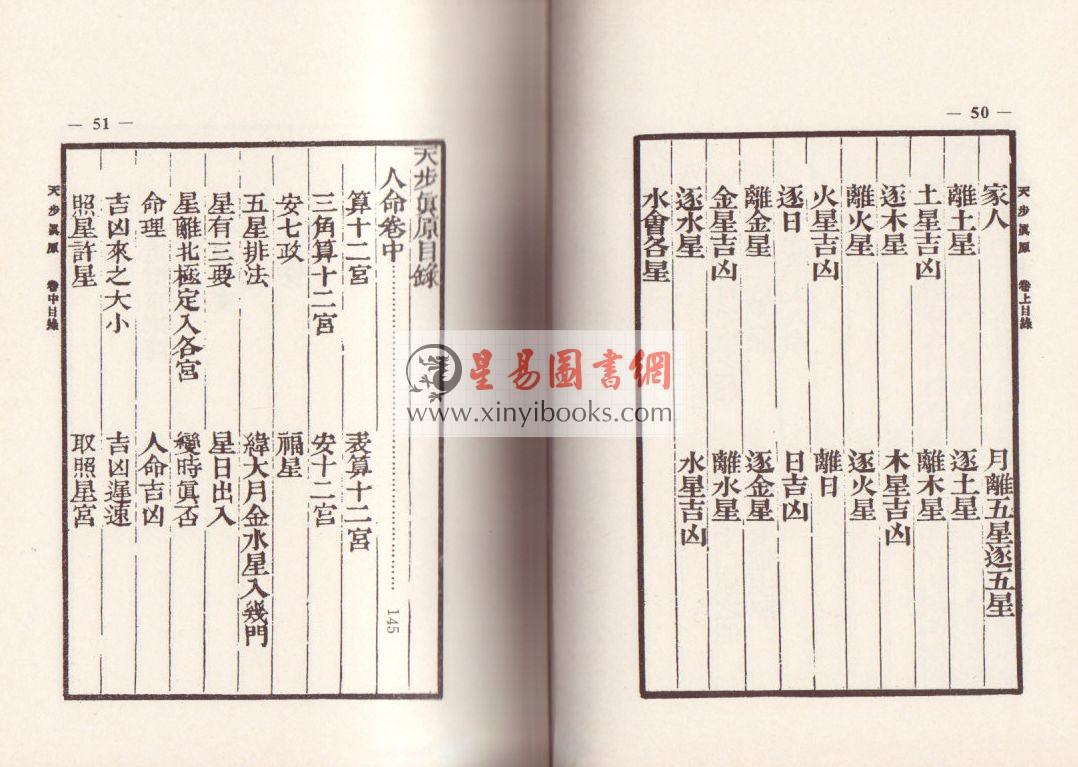 — 50 —
天步眞原 卷上目錄
家人 月離五星逐五星
離土星 逐土星
土星吉凶 離木星
逐木星 木星吉凶
離火星 逐火星
火星吉凶 離日
逐日 日吉凶
離金星 逐金星
金星吉凶 離水星
逐水星 水星吉凶
水會各星
— 51 —
天步眞原目錄
人命卷中 145
算十二宮 表算十二宮
三角算十二宮 安十二宮
安七政 福星
五星排法 緯大月金水星入幾門
星有三要 星日出入
星離北極定入各宮 變時眞否
命理 人命吉凶
吉凶來之大小 吉凶遲速
照星許星 取照星宮
天步眞原 卷中目錄
星易圖書網
www.xinyibooks.com